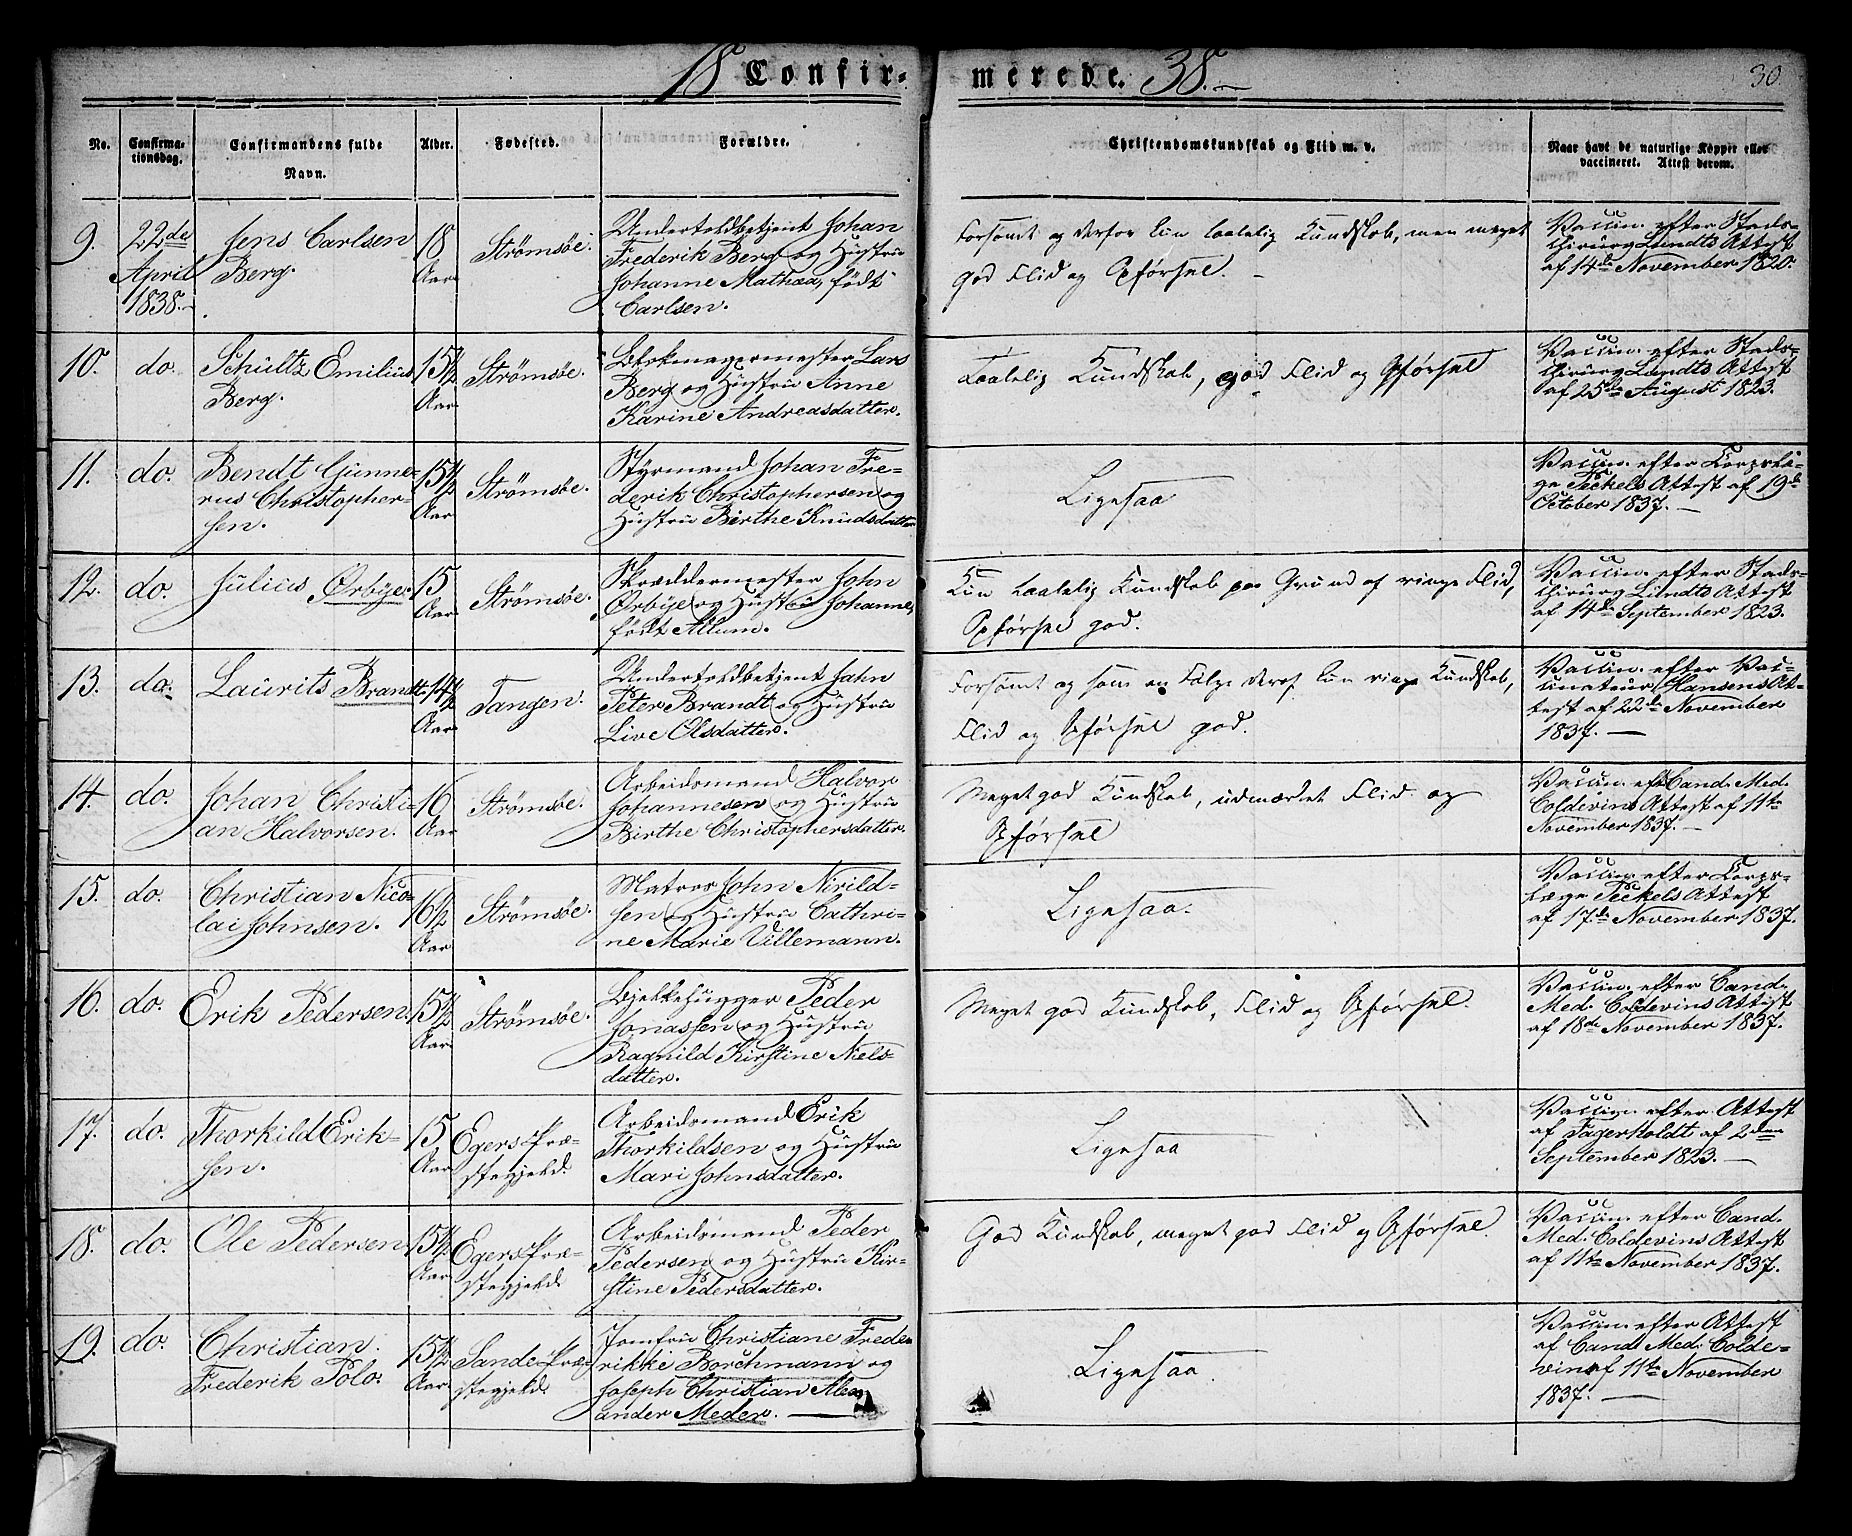 18 Confir-
merede. 38.
30.
No. Confirma-
tionsdag. Confirmandens fulde
Navn. Alder. Fødested. Forældre.
Christendomskundskab og Flid m. v.
Naar havt de naturlige Kopper eller
vaccineret. Attest derom.
9. 22de
April
1838.
Jens Carlsen
Berg.
18
Aar
Strømsøe.
Undertoldbetjent Johan
Frederik Berg og Hustru
Johanne Mathea, født
Carlsen.
Forsømt og derfor kun taalelig Kundskab, men meget
god Flid og Opførsel.
Vaccin. efter Stads-
chirurg Lundts Attest
af 14de November 1820.
10. do.
Schültz Emilius
Berg.
15½
Aar
Strømsøe.
Blokmagermester Lars
Berg og Hustru Anne
Karine Andreasdatter.
Taalelig Kundskab, god Flid og Opførsel
Vaccin. efter Stads-
chirurg Lundts Attest
af 25de August 1823.
11. do.
Bendt Gunne-
rus Christopher-
sen.
15½
Aar
Strømsøe.
Styrmand Johan Fre-
derik Christophersen og
Hustru Birthe Knudsdatter
Ligesaa
Vaccin. efter Corpslæ-
ge Teckels Attest af 19de
October 1837.
12. do.
Julius Ørbye.
15
Aar
Strømsøe.
Skræddermester John
Ørbye og Hustru Johanne,
født Allum.
Kun taalelig Kundskab paa Grund af ringe Flid,
Opførsel god.
Vaccin. efter Stads-
chirurg Lundts Attest
af 14de September 1823.
13. do.
Laurits Brandt.
14½
Aar
Tangen.
Undertoldbetjent John
Peter Brandt og Hustru
Live Olsdatter.
Forsømt og som en Følge deraf kun ringe Kundskab,
Flid og Opførsel god.
Vaccin. efter Vac-
cinateur Hansens At-
test af 22de November
1837.
14. do.
Johan Christi-
an Halvorsen.
16
Aar
Strømsøe.
Arbeidsmand Halvor
Johannesen og Hustru
Birthe Christophersdatter.
Meget god Kundskab, udmærket Flid og
Opførsel
Vaccin. eft Cand. Med.
Coldevins Attest af 11te
November 1837.
15. do.
Christian Nico-
lai Johnsen.
16½
Aar
Strømsøe.
Matros John Nirild-
sen og Hustru Cathri-
ne Marie Villemann.
Ligesaa.
Vaccin. efter Corps-
læge Teckels Attest
af 17de November 1837.
16. do.
Erik Pedersen.
15½
Aar
Strømsøe.
Bjelkehugger Peder
Jonassen og Hustru
Ragnild Kirstine Niels-
datter.
Meget god Kundskab, Flid og Opførsel.
Vaccin. efter Cand.
Med. Coldevins Attest
af 18de November 1837.
17. do.
Thorkild Erik-
sen.
15
Aar
Egers Præ-
stegjeld.
Arbeidsmand Erik
Thorkildsen og Hustru
Mari Johnsdatter.
Ligesaa
Vaccin. efter Attest
af Fagerholdt af 2den
September 1823.
18. do.
Ole Pedersen
15½
Aar
Egers Præ-
stegjeld.
Arbeidsmand Peder
Pedersen og Hustru Kir-
stine Pedersdatter.
God Kundskab, meget god Flid og Opførsel.
Vaccin. efter Cand.
Med. Coldevins Attest
af 11te November 1837.
19. do.
Christian
Frederik Polo.
15½
Aar
Sande Præ-
stegjeld.
Jomfru Christiane Frede-
rikke Borchmann og
Joseph Christian Alex-
ander Meder.
Ligesaa
Vaccin. efter Attest
af Cand. Med. Colde-
vin af 11te November
1837.